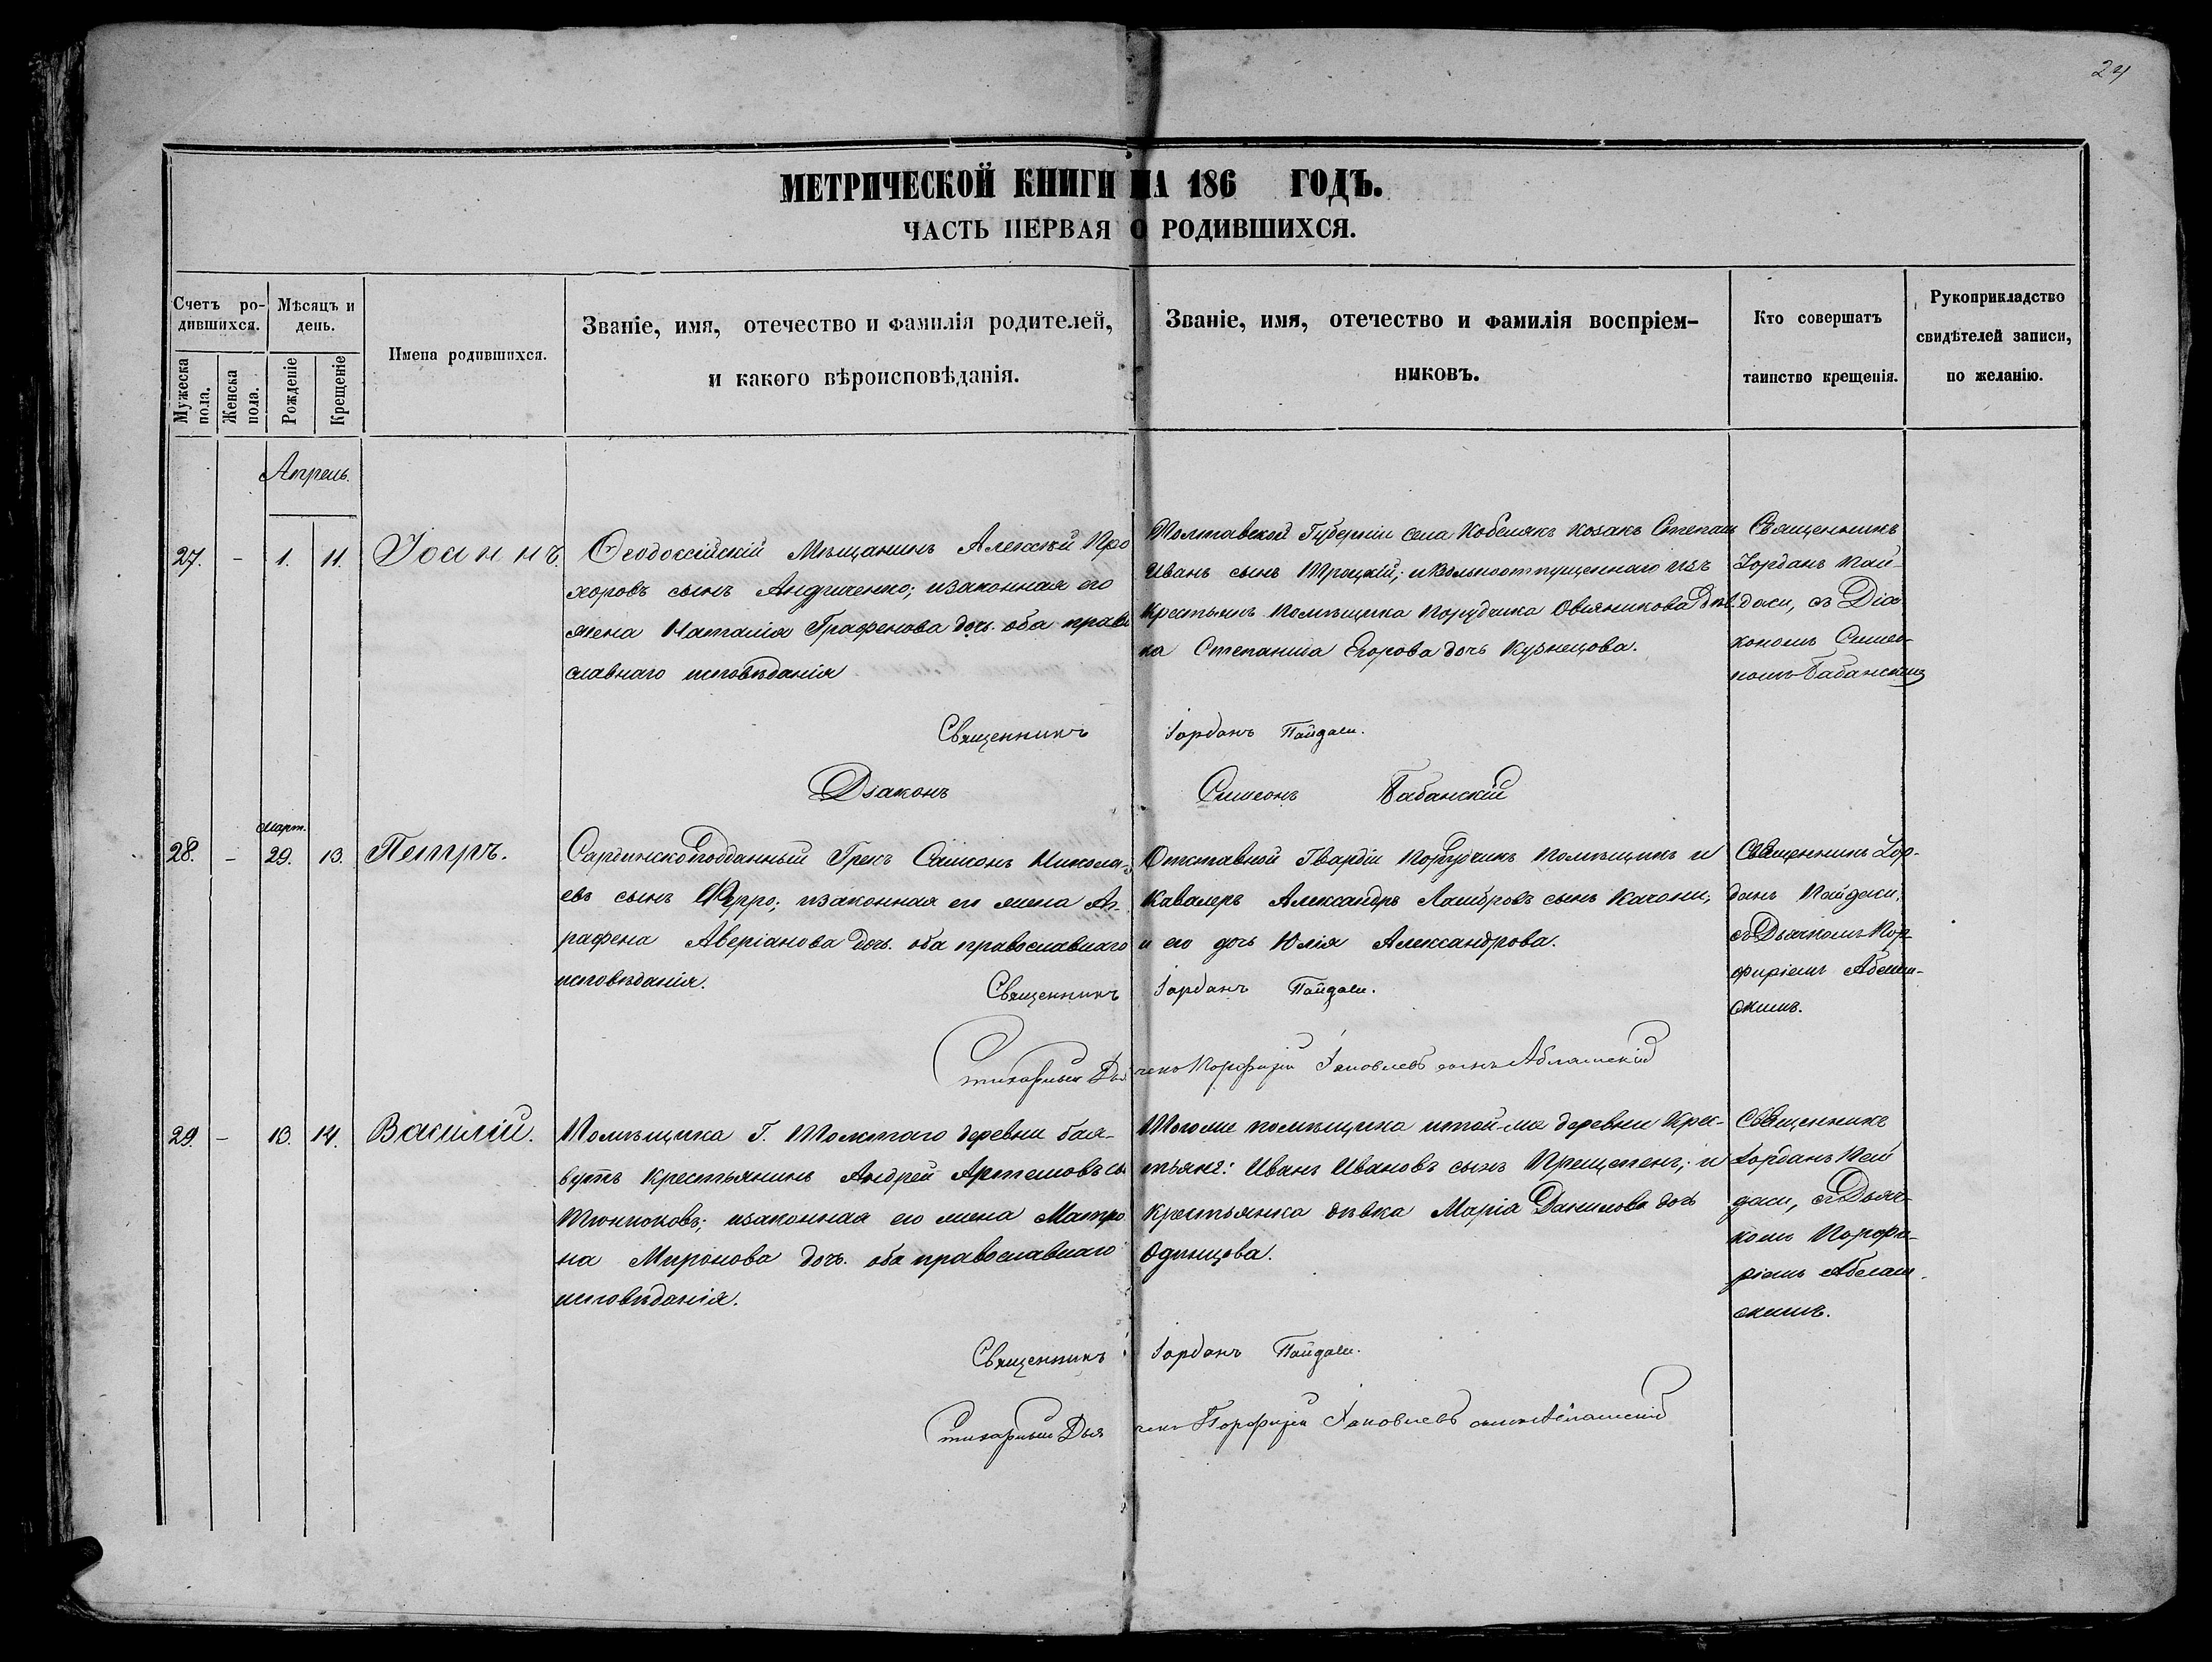 24
МЕТРИЧЕСКОЙ КНИГИ НА 186 ГОДЪ.
ЧАСТЬ ПЕРВАЯ О РОДИВШИХСЯ.
Счетъ ро-
дившихся.
Мужеска пола.
Женска пола.
Мѣсяцъ и
день.
Рожденіе
Крещеніе
Имена родившихся.
Званіе, имя, отечество и фамилія родителей,
и какого вѣроисповѣданія.
Званіе, имя, отечество и фамилія воспріем-
никовъ.
Кто совершатъ
таинство крещенія.
Рукоприкладство
свидѣтелей записи,
по желанію.
Апрель.
27. - 1. 11. Іоаннъ.
Ѳеодосійскій Мѣщанинъ Алексѣй Про
хоровъ сынъ Андриченко; изаконная его
жена Наталія Графенова дочь. оба право
славнаго исповѣданія
Полтавской Губерніи села Кобелякъ козакъ Степанъ
Иванъ сынъ Троцкій; и Вольноотпущеннаго изъ
Крестьянъ помѣщика порудчика Овсяникова дѣв
ка Степанида Егорова дочь Кузнецова.
Священникъ
Іорданъ Пай-
даси, съ Діа
кономъ Симео-
номъ Бабанскимъ
Священникъ Іорданъ Пайдаси.
Діаконъ Симеонъ Бабанскій
Март.
28. - 29. 13. Петръ.
Сардинскоподданный Грекъ Симеонъ Никола-
евъ сынъ Ферро; изаконная его жена Аг-
рафена Аверіанова дочь. оба православнаго
исповѣданія.
Отставной Гвардіи Порудчикъ помѣщикъ и
Кавалеръ Александръ Ламбровъ сынъ Качони;
и его дочь Юлія Александрова.
Священникъ Іор-
данъ Пайдаси,
съ Дьячкомъ Пор-
фиріемъ Аблаш-
скимъ.
Священникъ Іорданъ Пайдаси.
Стихарный Дьячекъ Порфирій Яковлевъ сынъ Аблашскій
29. - 13. 14. Василій.
Помѣщика Г. Толстаго деревни бая-
вутъ Крестьянинъ Андрей Артемовъ сы
Тюнюковъ; изаконная его жена Матро
на Миронова дочь. оба православнаго
исповѣданія.
Тогоже помѣщика итой-же деревни Крес-
тьянъ: Иванъ Ивановъ сынъ Прещепенъ; и
Крестьянка дѣвка Марія Данилова дочь
Одинцова.
Священникъ
Іорданъ Пай
даси, съ Дьяч-
комъ Порфи-
ріемъ Аблаш-
скимъ.
Священникъ Іорданъ Пайдаси.
Стихарный Дьячекъ Порфирій Яковлевъ сынъ Аблашскій